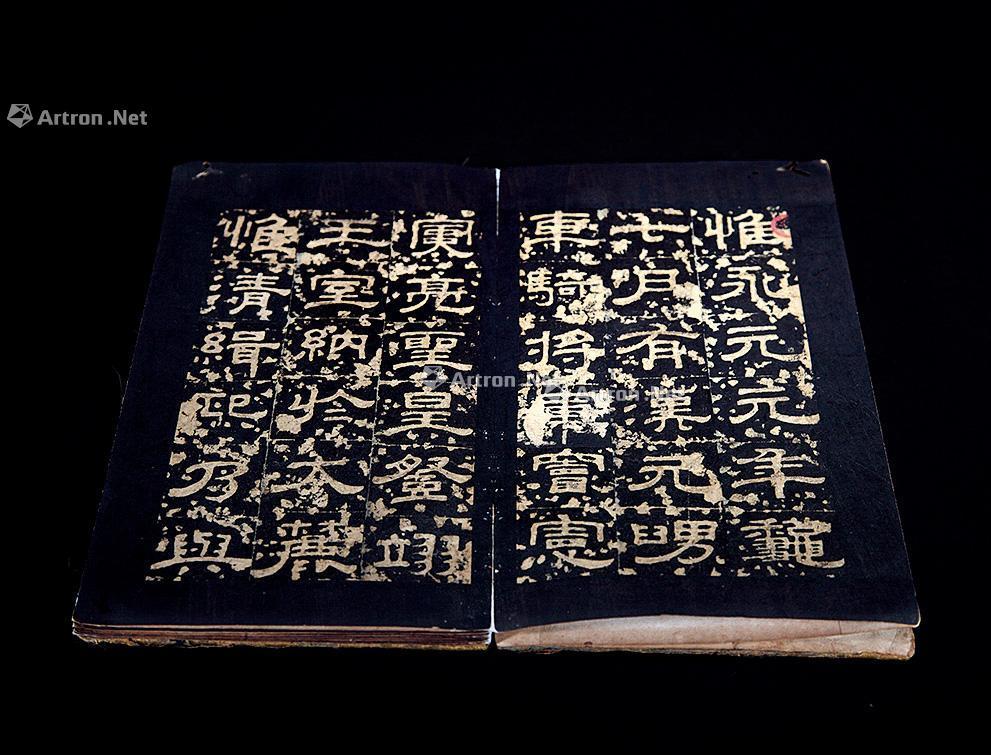 惟永元元年龝
七月有漢元舅
車騎將軍竇憲
寅亮聖皇登翊
王室納於大麓
惟清緝熙乃與
Artron.Net
Artron.Net
Artron.Net